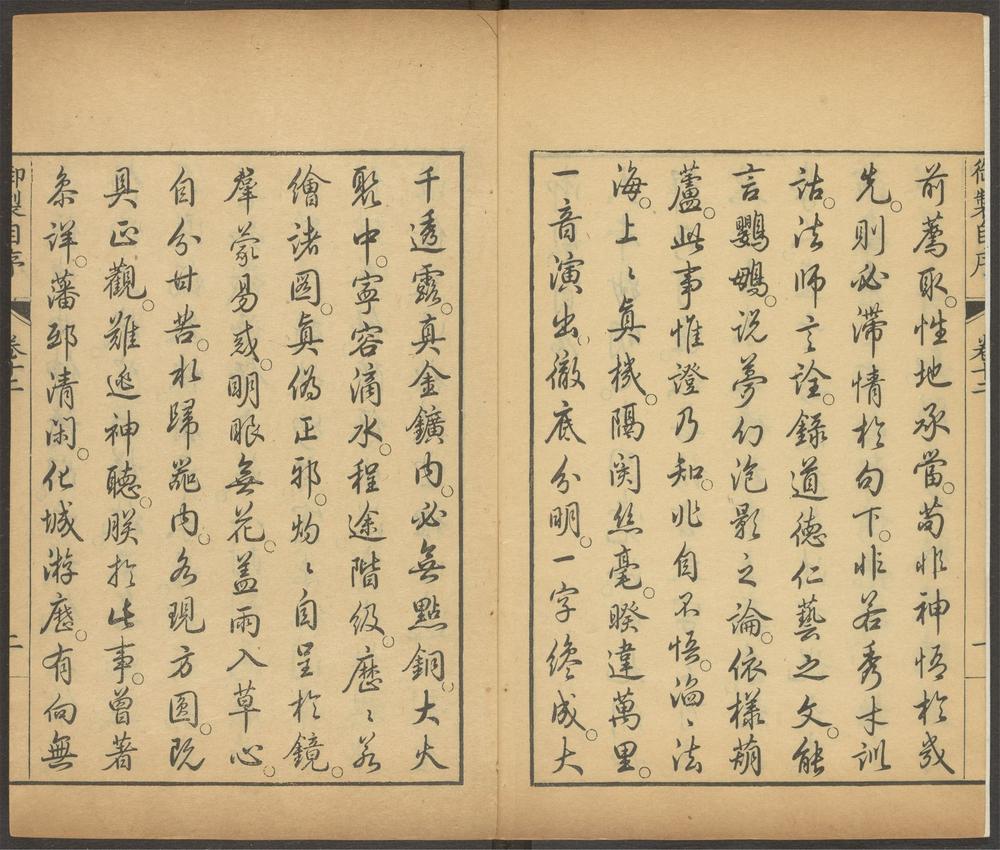 御製自序
卷十二
一
前薦取性地承當苟非神悟於幾
先則必滯情於句下非若秀才訓
詁法師言詮錄道德仁藝之文能
言鸚鵡說夢幻泡影之論依樣葫
蘆此事惟證乃知非自不悟滔〻法
海上〻真機隔閡絲毫睽違萬里
一音演出徹底分明一字纔成大
千透露真金鑛內必無點銅大火
聚中寧容滴水程途階級歷〻若
繪諸圖真偽正邪灼〻自呈於鏡
羣蒙易惑明眼無花蓋雨入草心
自分甘苦水歸器內各現方圓既
具正觀難逃神聽朕於此事曾著
參詳藩邸清閑化城游歷有向無
御製自序
卷十二
二